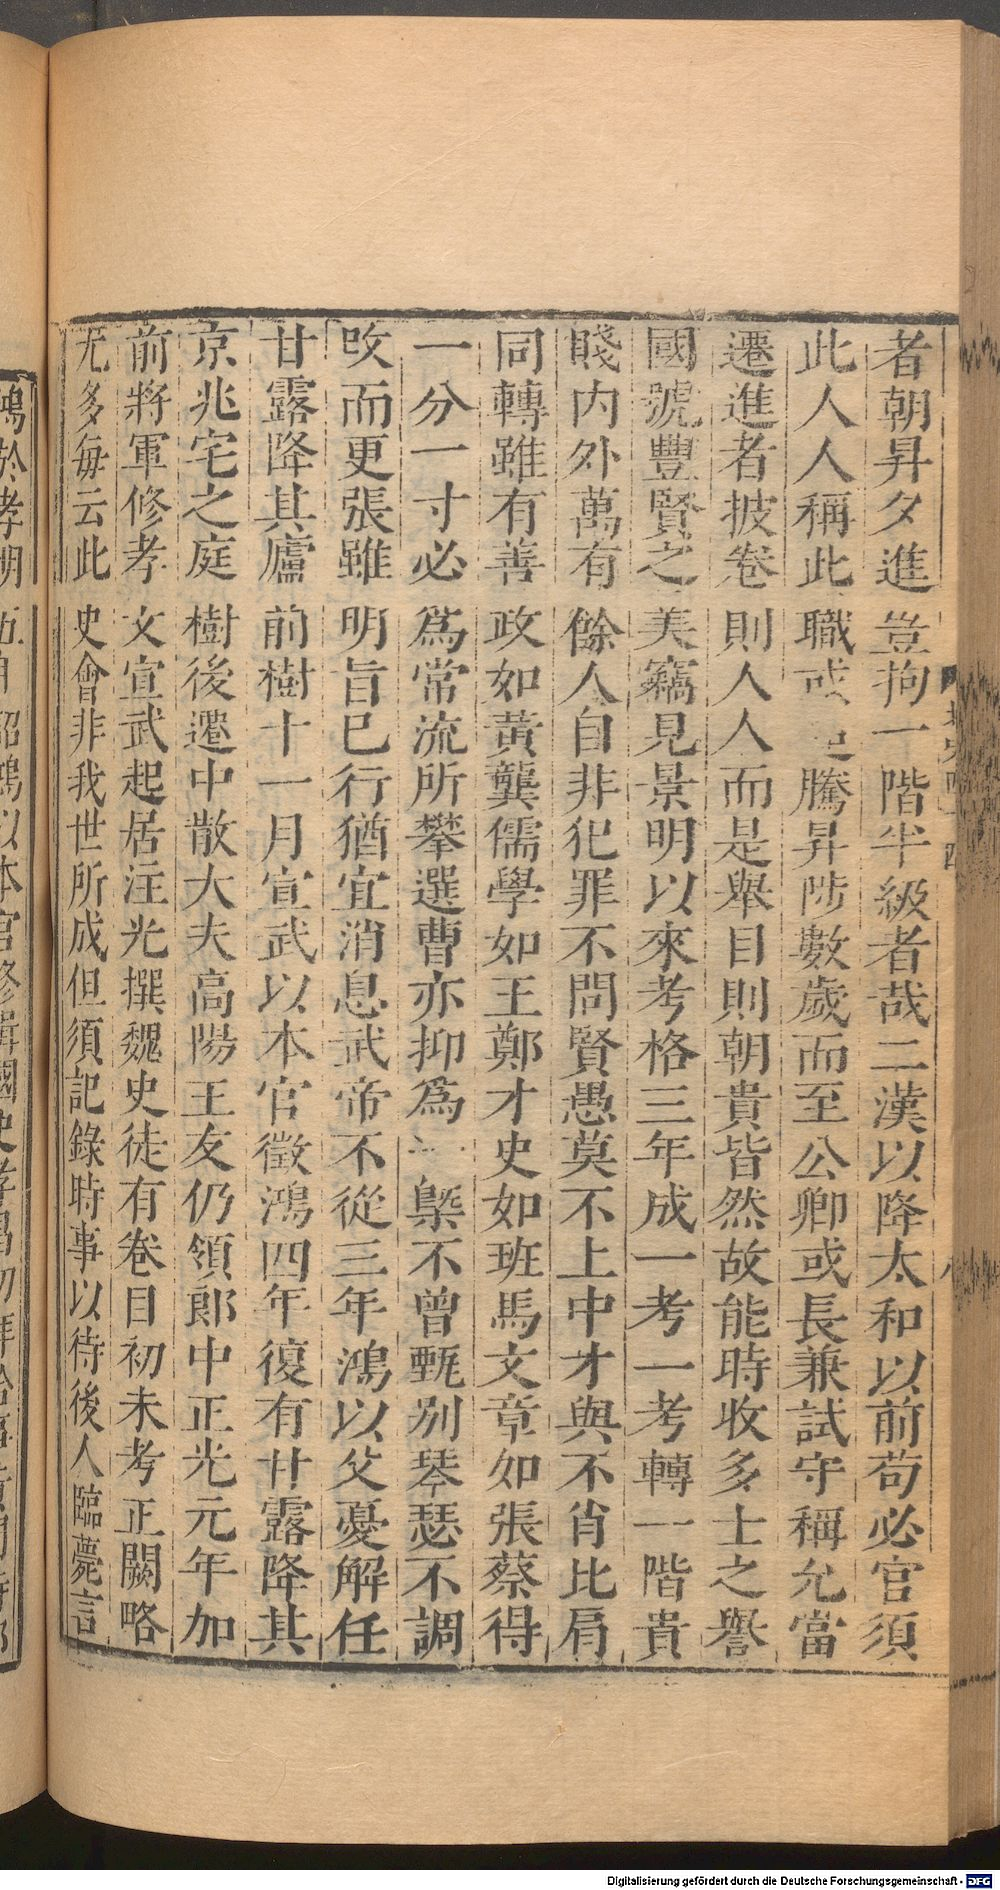 者朝昇夕進豈拘一階半級者哉二漢以降太和以前苟必官須
此人人稱此職或 騰昇陟數歲而至公卿或長兼試守稱允當
遷進者披卷則人人而是舉目則朝貴皆然故能時收多士之譽
國號豐賢之美竊見景明以來考格三年成一考一考轉一階貴
賤内外萬有餘人自非犯罪不問賢愚莫不上中才與不肖比肩
同轉雖有善政如黃龔儒學如王鄭才史如班馬文章如張蔡得
一分一寸必爲常流所攀選曹亦抑爲一槩不曾甄別琴瑟不調
攺而更張雖明旨已行猶宜消息武帝不從三年鴻以父憂解任
甘露降其廬前樹十一月宣武以本官徵鴻四年復有甘露降其
京兆宅之庭樹後遷中散大夫高陽王友仍領郎中正光元年加
前將軍修孝文宣武起居注光撰魏史徒有卷目初未考正闕略
尤多每云此史會非我世所成但須記錄時事以待後人臨薨言
鴻於孝明五月詔鴻以本官修緝國史孝昌初拜給事黃門侍郎
Digitalisierung gefördert durch die Deutsche Forschungsgemeinschaft - DFG